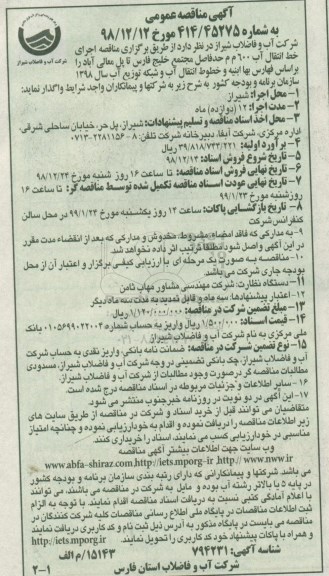 آگهی مناقصه عمومی
به شماره ۴۱۴/۴۵۲۷۵ مورخ ۹۸/۱۲/۱۲
شرکت آب و فاضلاب شیراز
شرکت آب و فاضلاب شیراز در نظر دارد از طریق برگزاری مناقصه اجرای
خط انتقال آب ۶۰۰ م م حدفاصل مجتمع خلیج فارس تا پل معالی آباد را
براساس فهارس بها ابنیه و خطوط انتقال آب و شبکه توزیع آب سال ۱۳۹۸
سازمان برنامه و بودجه کشور به شرح زیر به شرکتها و پیمانکاران واجد شرایط واگذار نماید:
۱- محل اجرا: شیراز
۲- مدت اجرا: ۱۲ (دوازده) ماه
۳- محل اخذ اسناد مناقصه و تسلیم پیشنهادات: شیراز، پل حر، خیابان ساحلی شرقی،
اداره مرکزی، شرکت آبفا، دبیرخانه شرکت تلفن: ۸ - ۲۲۸۱۱۵۶-۰۷۱۳
۴- برآورد اولیه: ۳۹/۸۱۸/۷۴۳/۲۲۱ ریال
۵- تاریخ شروع فروش اسناد: ۹۸/۱۲/۱۲
۶- تاریخ نهایی فروش اسناد مناقصه: تا ساعت ۱۶ روز شنبه مورخ ۹۸/۱۲/۲۴
۷- تاریخ نهایی عودت اسناد مناقصه تکمیل شده توسط مناقصه گر: تا ساعت ۱۶
روز شنبه مورخ ۹۹/۱/۲۳
۸- تاریخ بازگشایی پاکات: ساعت ۱۳ روز یکشنبه مورخ ۹۹/۱/۲۴ در محل سالن
کنفرانس شرکت
۹- به مدارکی که فاقد امضاء، مشروط، مخدوش و مدارکی که بعد از انقضاء مدت مقرر
در این آگهی واصل شود مطلقا ترتیب اثر داده نخواهد شد.
۱۰- مناقصه به صورت یک مرحله ای با ارزیابی کیفی برگزار و اعتبار آن از محل
بودجه جاری شرکت می باشد.
۱۱- دستگاه نظارت: شرکت مهندسی مشاور مهاب ثامن
۱۲- اعتبار پیشنهادها: سه ماه و قابل تمدید به مدت سه ماه دیگر
۱۳- مبلغ تضمین شرکت در مناقصه: ۱/۱۲۰/۰۰۰/۰۰۰ ریال
۱۴- قیمت اسناد: ۱/۵۰۰/۰۰۰ ریال واریز به حساب شماره ۰۱۰۵۶۹۹۰۲۲۰۰۲ بانک
ملی مرکزی به نام شرکت آب و فاضلاب شیراز
۱۵- نوع تضمین شرکت در مناقصه: ضمانت نامه بانکی، واریز نقدی به حساب شرکت
آب و فاضلاب شیراز، چک بانکی تضمینی در وجه شرکت آب و فاضلاب شیراز، مسدودی
مطالبات مناقصه گر در صورت وجود مطالبات از شرکت آب و فاضلاب شیراز.
۱۶- سایر اطلاعات و جزئیات مربوطه در اسناد مناقصه درج شده است.
۱۷- این آگهی در دو نوبت در روزنامه خبرجنوب منتشر می شود.
متقاضیان می توانند قبل از خرید اسناد و شرکت در مناقصه از طریق سایت های
زیر اطلاعات مناقصه را دریافت نموده و اقدام به خودارزیابی نموده و چنانچه امتیاز
مناسبی در خودارزیابی کسب می نمایند، اسناد را خریداری کنند.
وب سایت جهت اطلاعات بیشتر آگهی مناقصه
www.abfa-shiraz.com,http://iets.mporg-ir ,http// www.nww.ir
می باشد. شرکتها و پیمانکارانی که دارای رتبه بندی سازمان برنامه و بودجه کشور
در پایه ۵ یا بالاتر رشته آب بوده و مایل به شرکت در مناقصه می باشند، می توانند
با اعلام آمادگی کتبی نسبت به دریافت اسناد مناقصه اقدام نمایند. با توجه به الزام
ثبت اطلاعات مناقصات در پایگاه ملی اطلاع رسانی مناقصات کلیه شرکت کنندگان در
مناقصه می بایست در پایگاه مذکور به آدرس ذیل ثبت نام و کد کاربری دریافت نمایند
و همراه با پاکات پیشنهاد خود کد کاربری را تحویل نمایند. http//iets.mporg.ir
شناسه آگهی: ۷۹۴۲۳۱ ۱۵۱۴۳/م الف
شرکت آب و فاضلاب استان فارس
۲-۱